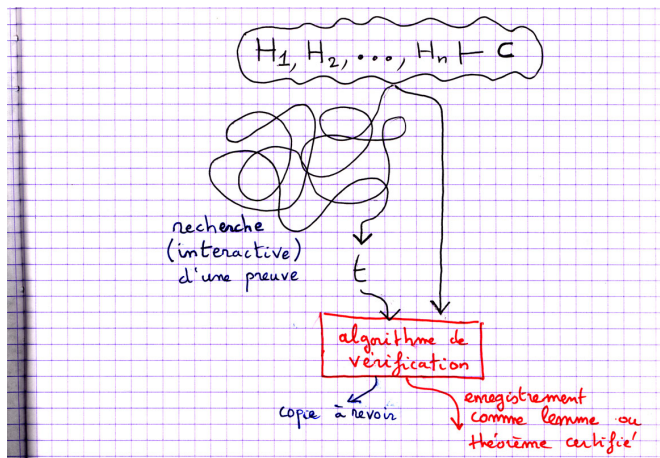 H₁, H₂, ..., Hₙ ⊢ C
recherche
(interactive)
d'une preuve
t
algorithme de
vérification
copie à revoir
enregistrement
comme lemme ou
théorème certifié